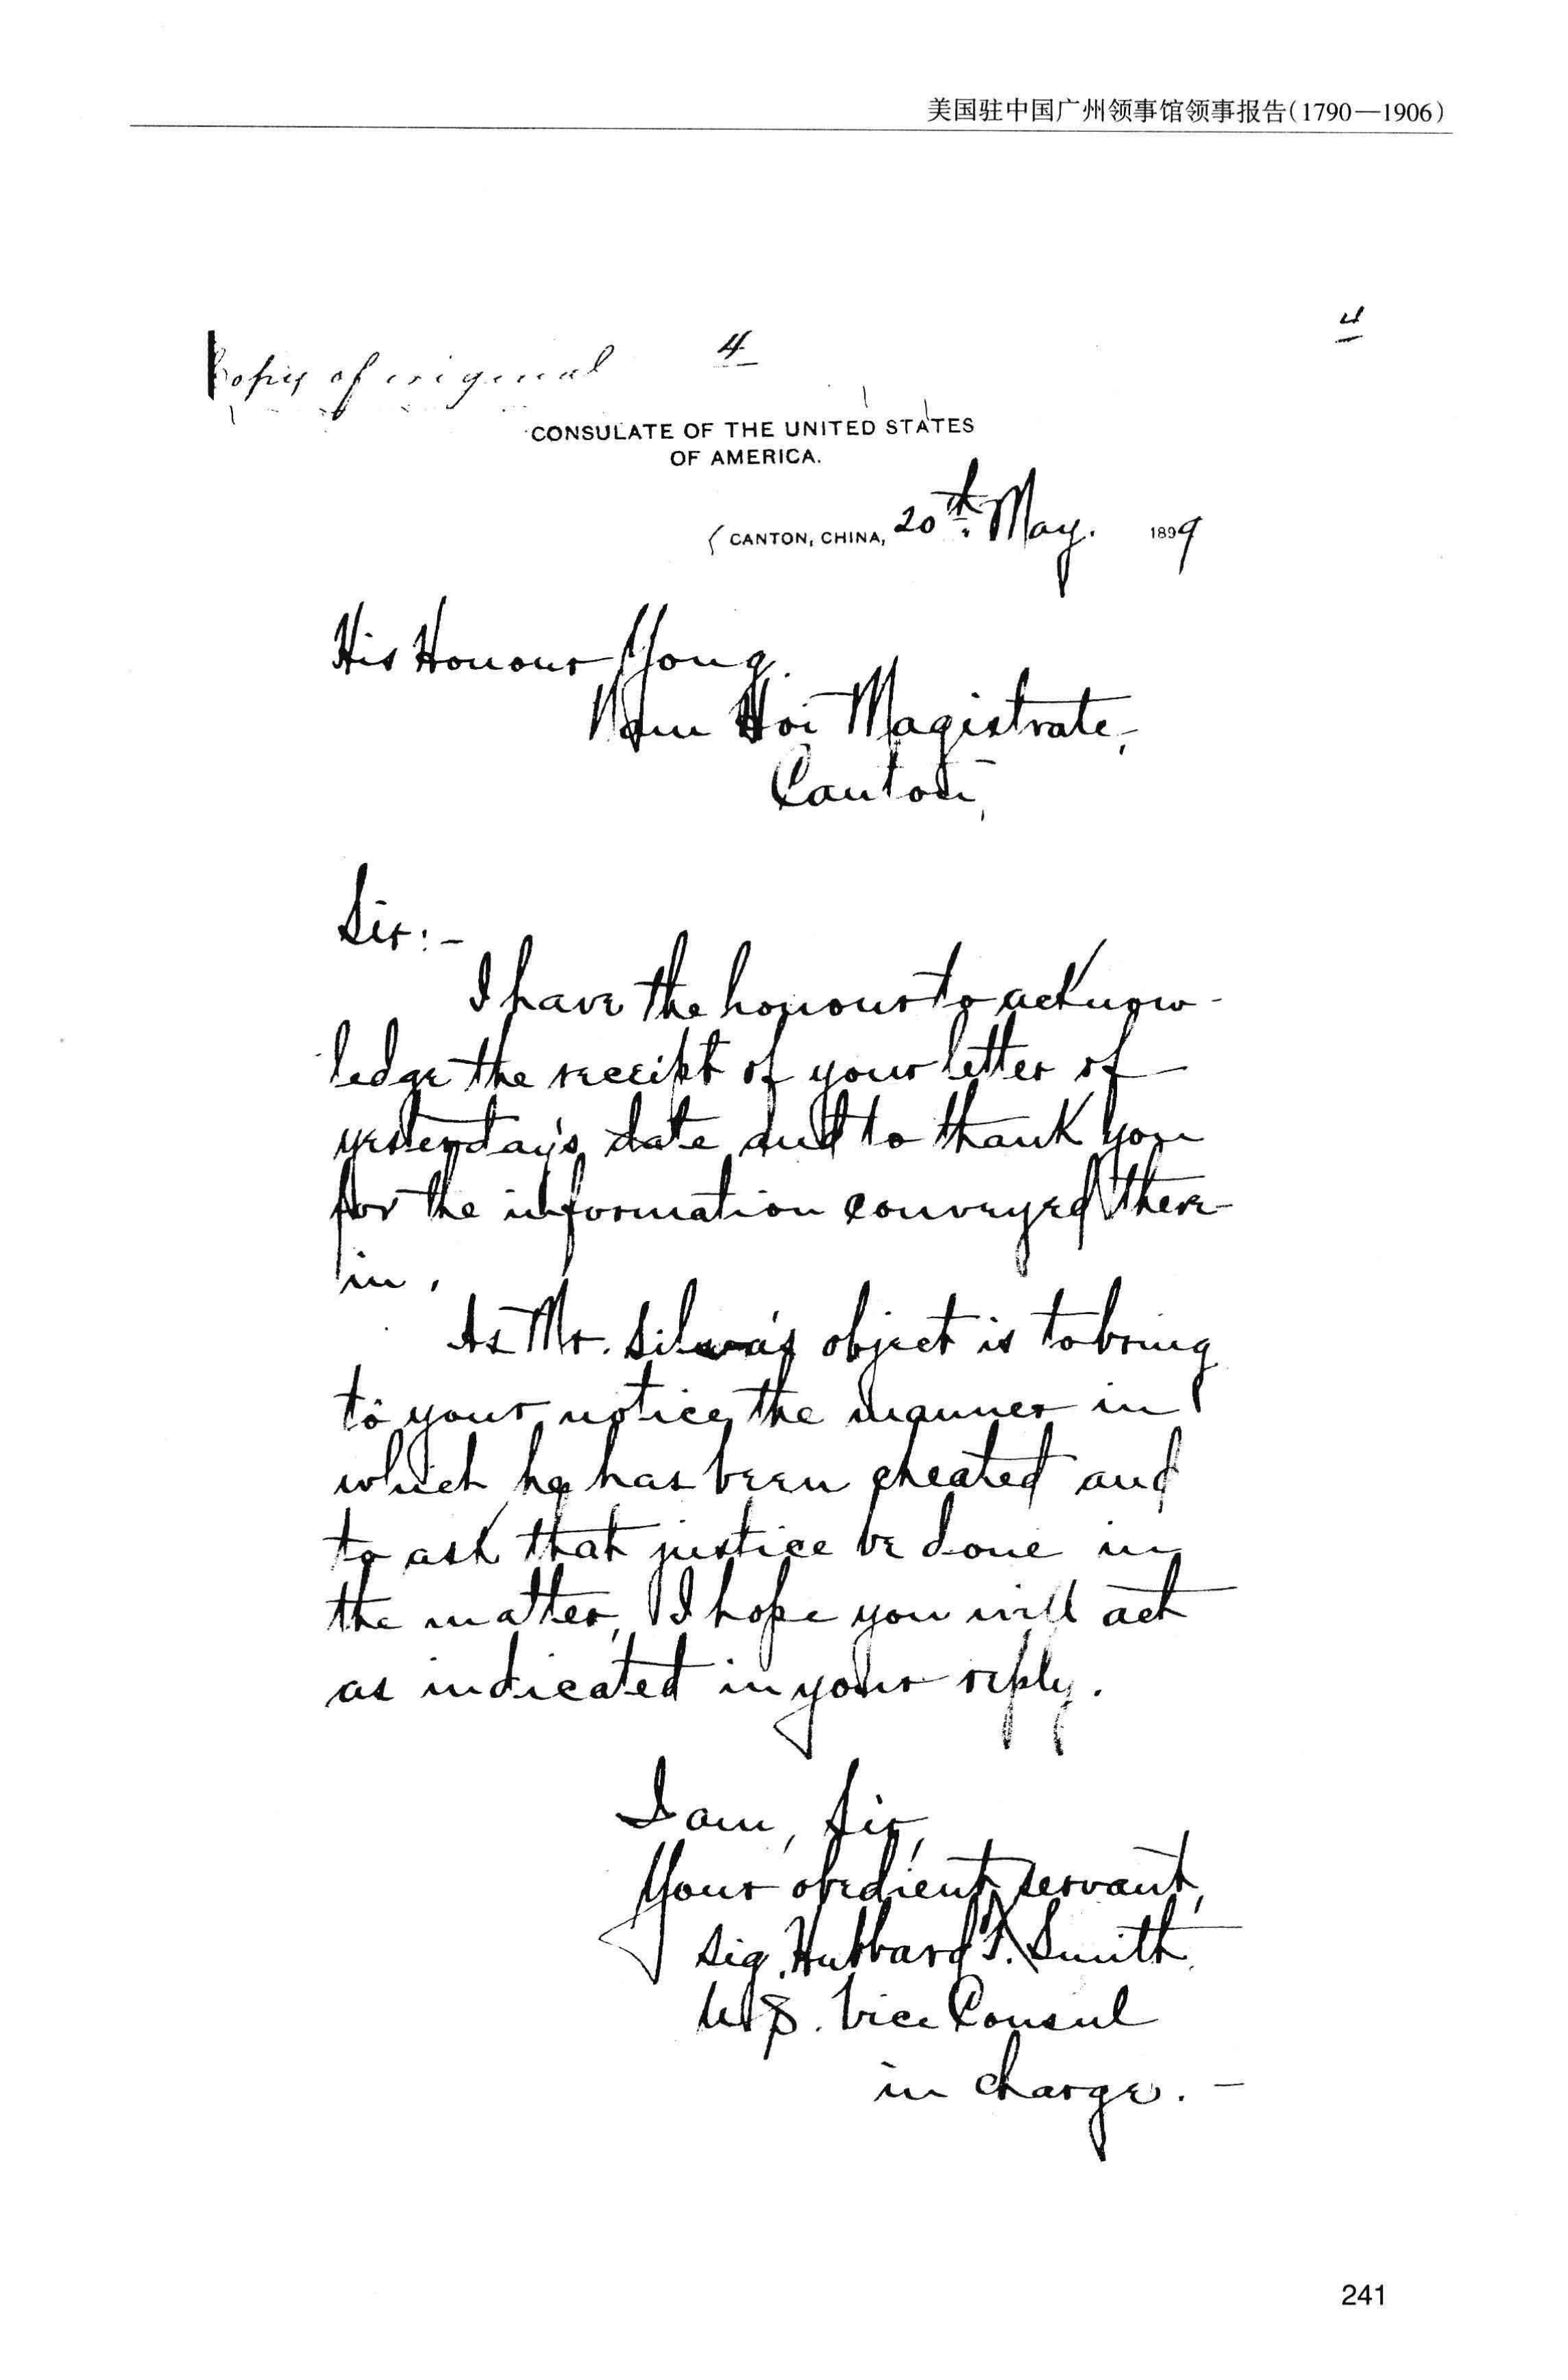 美国驻中国广州领事馆领事报告(1790—1906)
Copy of original 4 4
CONSULATE OF THE UNITED STATES
OF AMERICA.
CANTON, CHINA, 20th. May. 1899
His Honour Yong.
Nam Hoi Magistrate,
Canton,
Sir:-
I have the honour to acknow-
ledge the receipt of your letter of
yesterday's date and to thank you
for the information conveyed there-
in.
As Mr. Silva's object is to bring
to your notice the manner in
which he has been cheated and
to ask that justice be done in
the matter, I hope you will act
as indicated in your reply.
I am, Sir,
Your obedient servant,
Sig. Hubbard T. Smith.
U.S. Vice Consul
in charge. -
241